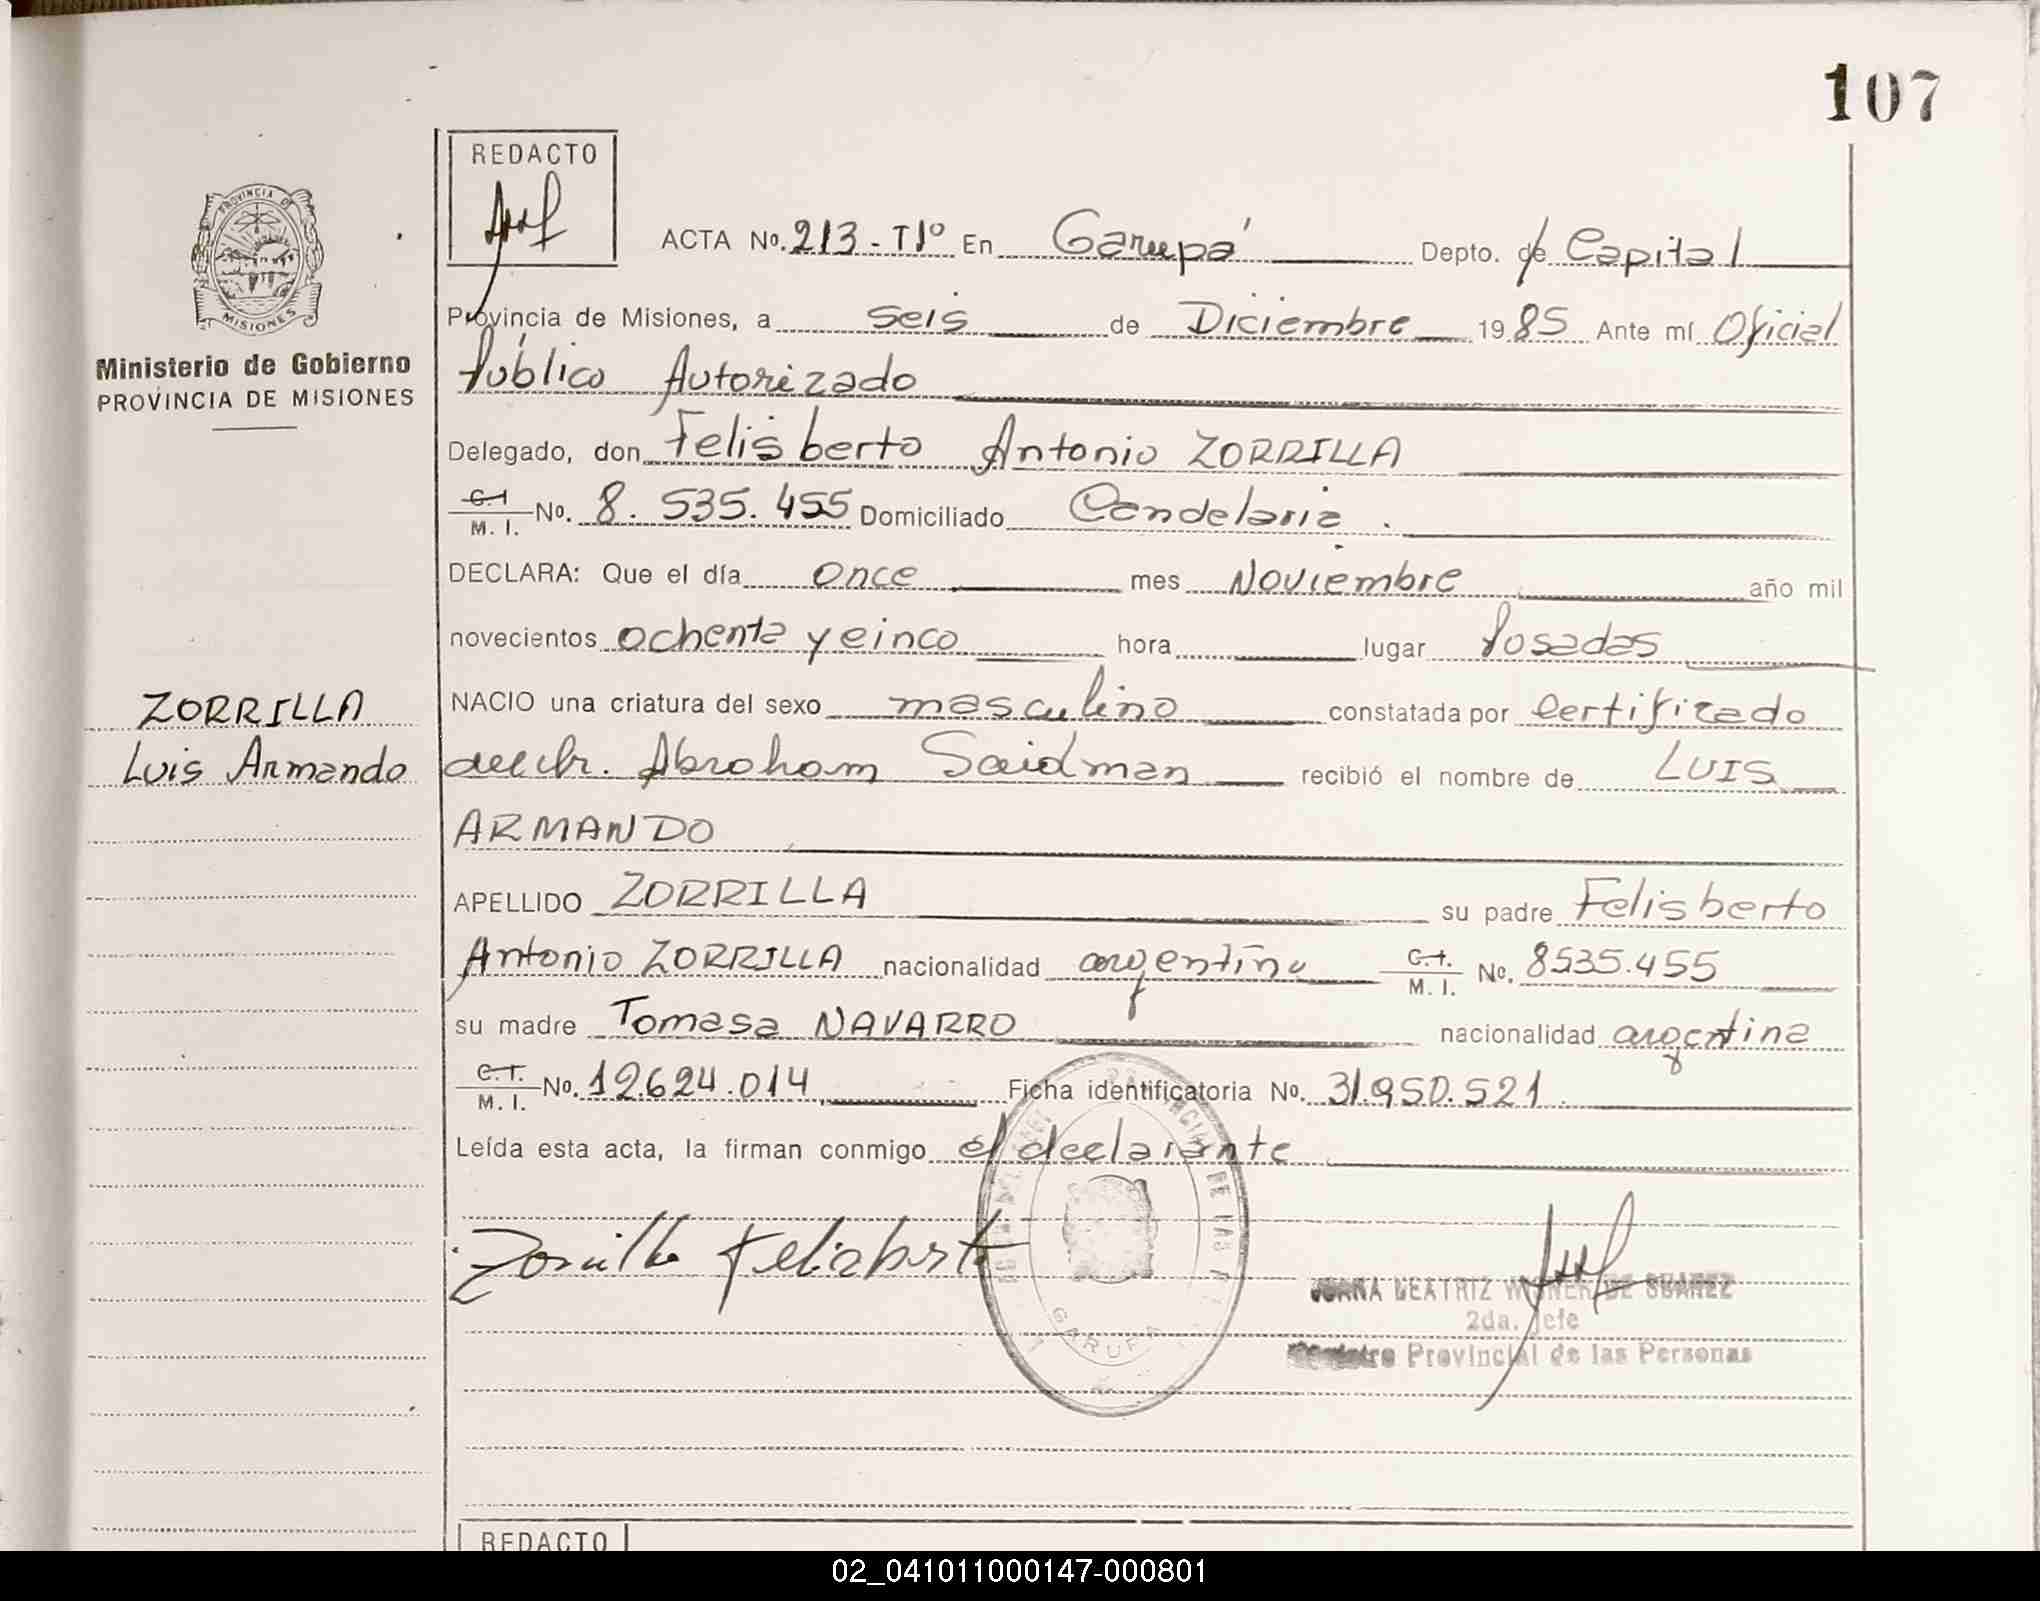 107
REDACTO
PROVINCIA DE
MISIONES
Ministerio de Gobierno
PROVINCIA DE MISIONES
ACTA No. 213 - T1º En Garupá Depto. de Capital
Provincia de Misiones, a seis de Diciembre 1985 Ante mí Oficial
Público Autorizado
Delegado, don Felisberto Antonio ZORRILLA
C.I. M. I. No. 8.535.455 Domiciliado Candelaria.
DECLARA: Que el día once mes Noviembre año mil
novecientos ochenta y cinco hora lugar Posadas
ZORRILLA
Luis Armando
NACIO una criatura del sexo masculino constatada por Certificado
del Dr. Abraham Saidman recibió el nombre de LUIS
ARMANDO
APELLIDO ZORRILLA su padre Felisberto
Antonio ZORRILLA nacionalidad argentino C.I. M. I. No. 8535.455
su madre Tomasa NAVARRO nacionalidad argentina
C.I. M. I. No. 12.624.014 Ficha identificatoria No. 31.950.521
Leída esta acta, la firman conmigo el declarante
Zorrilla Felisberto
GARUPA
JUANA BEATRIZ DE SUAREZ
2da. Jefe
Registro Provincial de las Personas
REDACTO
02_041011000147-000801